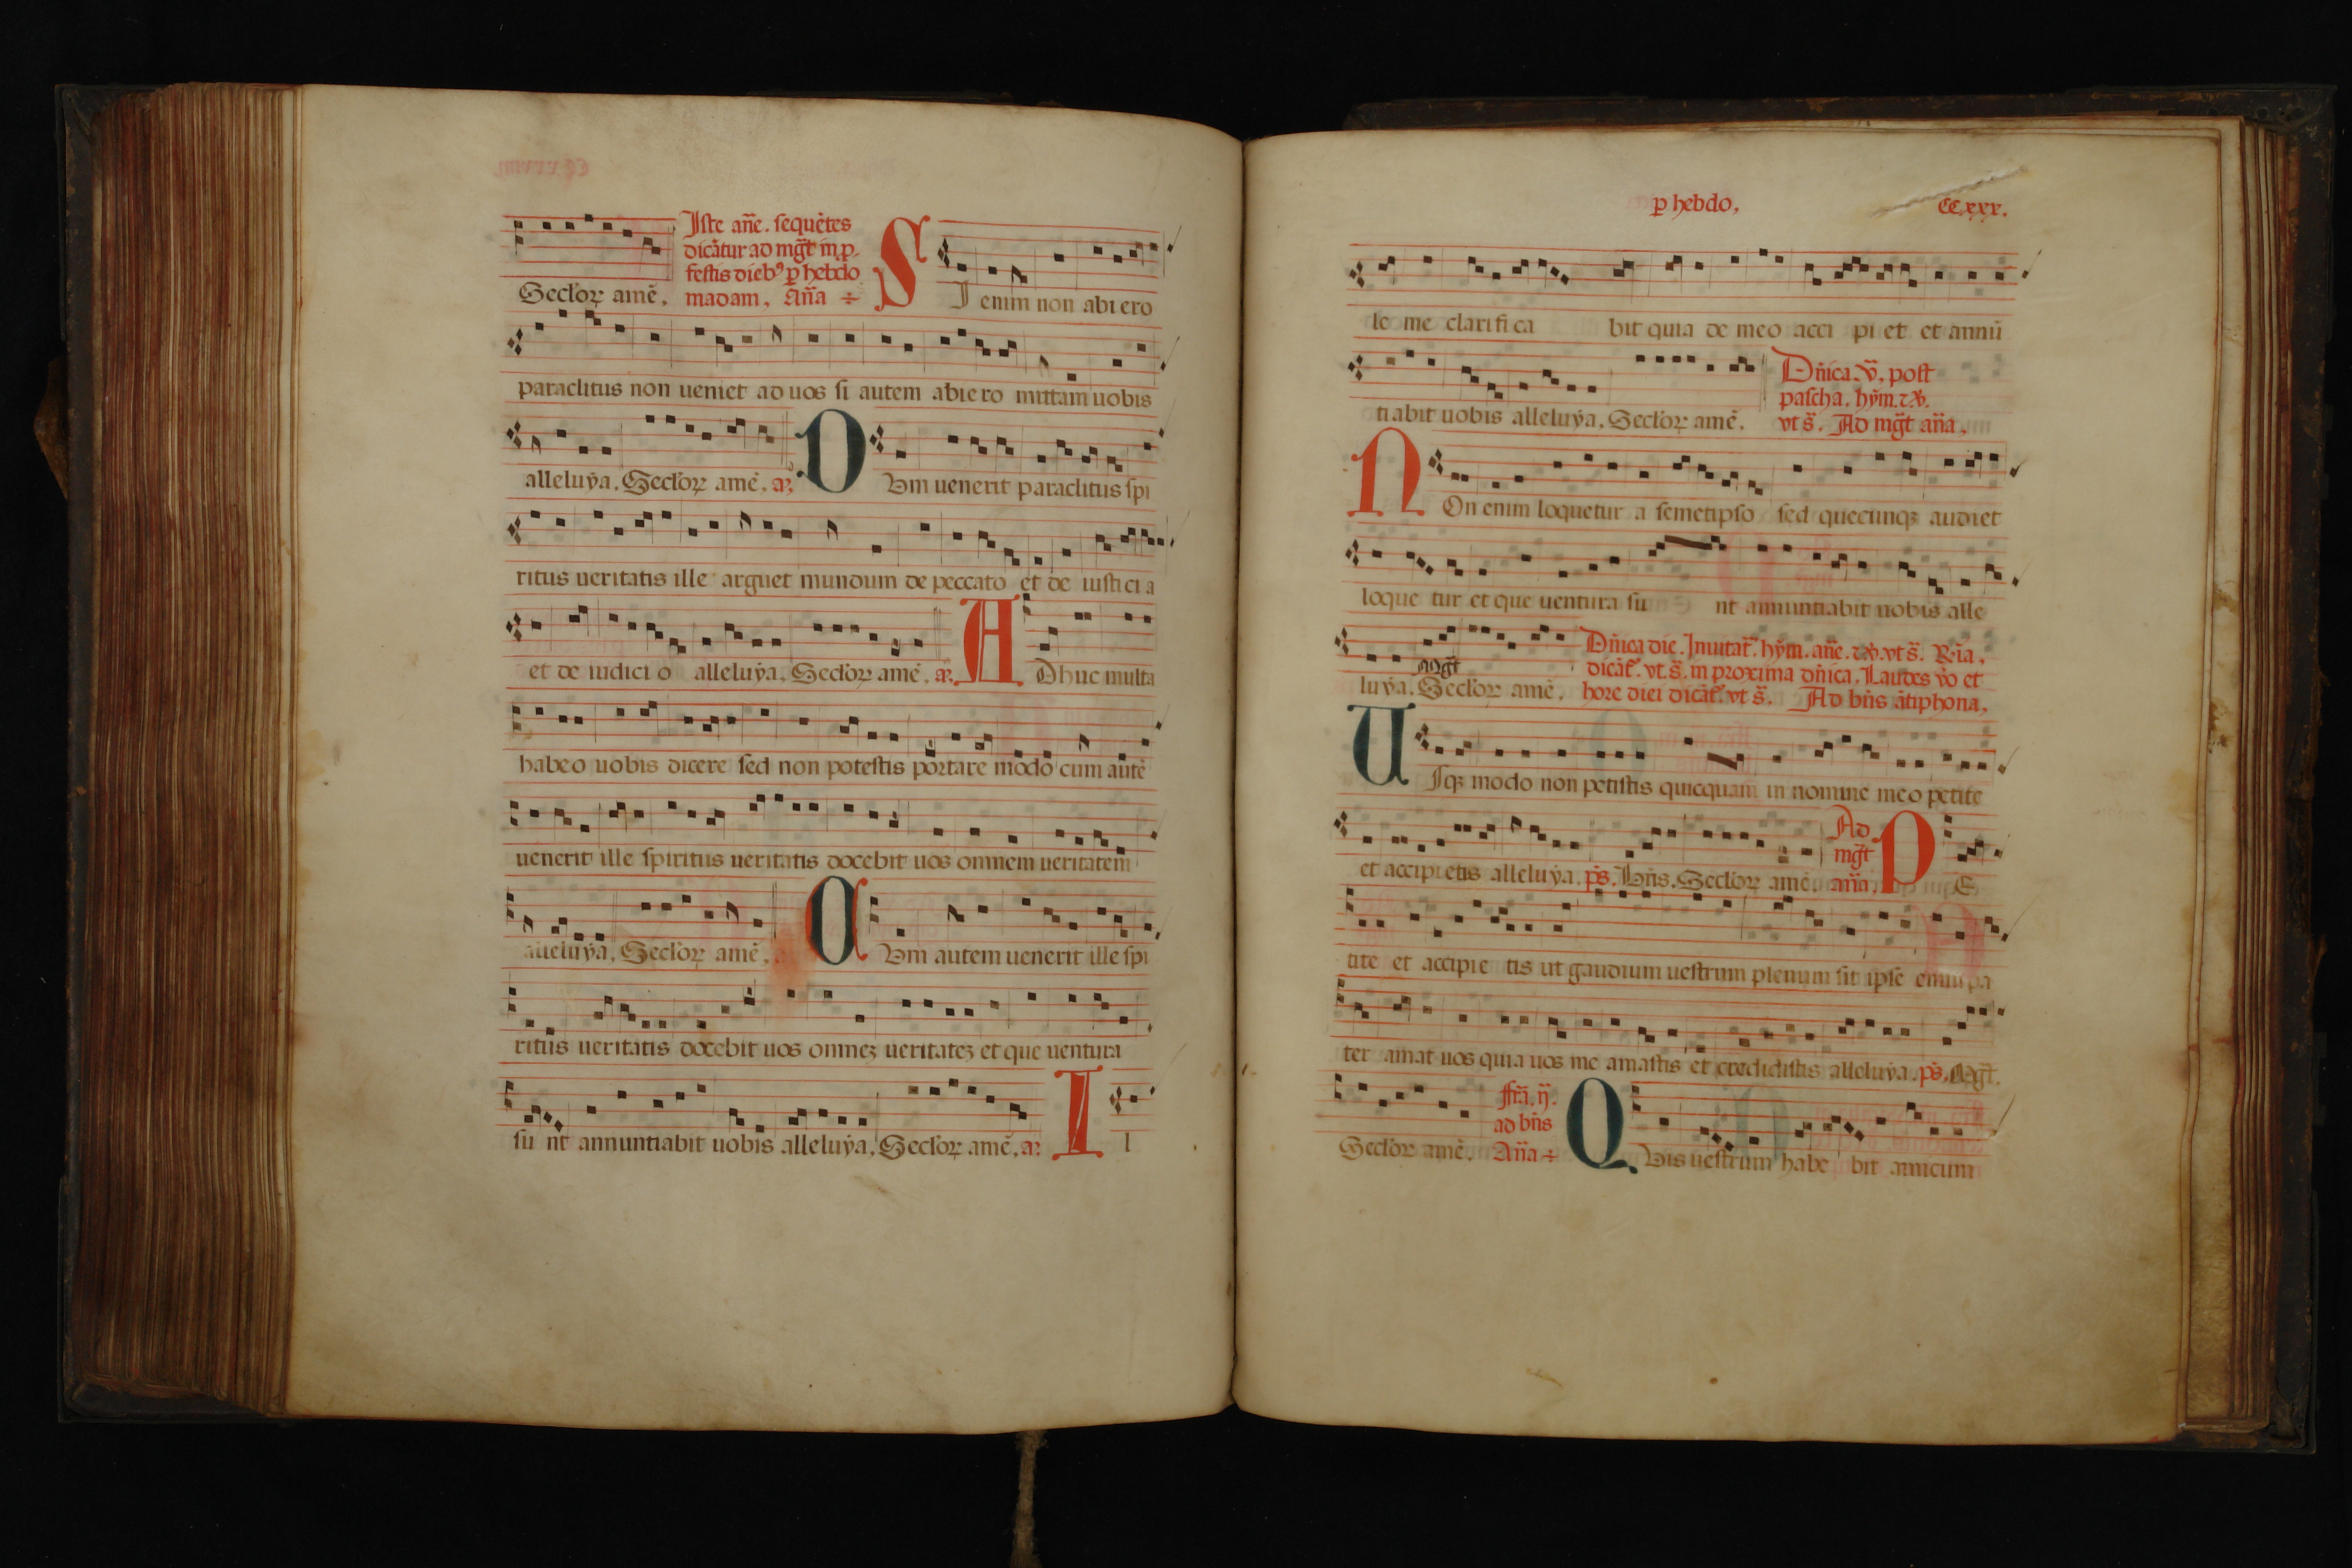 Iste añe. sequẽtes
dicãtur ad mg̃t in p̱-
festis dieb⁹ p̱ hebdo
Seclorꝝ amẽ. madam. Aña ÷ SI enim non abiero
paraclitus non ueniet ad uos si autem abiero mittam uobis
alleluẏa. Seclorꝝ amẽ. añ. DUm uenerit paraclitus spi
ritus ueritatis ille arguet mundum de peccato et de iusticia
et de iudicio alleluẏa. Seclorꝝ amẽ. añ. ADhuc multa
habeo uobis dicere sed non potestis portare modo cum autẽ
uenerit ille spiritus ueritatis docebit uos omnem ueritatem
alleluẏa. Seclorꝝ amẽ. CUm autem uenerit ille spi
ritus ueritatis docebit uos omneꝫ ueritateꝫ et que uentura
sunt annuntiabit uobis alleluẏa. Seclorꝝ amẽ. añ. Il
p̱ hebdo. CC.xxx.
le me clarificabit quia de meo accipiet et annũ
Dñica. v̄. post
pascha. hỹm. ⁊ ꝟ.
tiabit uobis alleluẏa. Seclorꝝ amẽ. vt s̃. Ad mg̃t aña.
NOn enim loquetur a semetipso sed quecunqꝫ audiet
loquetur et que uentura sunt annuntiabit uobis alle
Dñica die. Inuitat̃. hỹm. añe. ⁊ ꝟ. vt s̃. R̃ia.
Mg̃t dicãt̃. vt s̃. in proxima dñica. Laudes ṽo et
luẏa. Seclorꝝ amẽ. hore diei dicãt̃. vt s̃. Ad bñs ãtiphona.
USqꝫ modo non petistis quicquam in nomine meo petite
Ad
mg̃t
et accipietis alleluẏa. p̃s. Bñs. Seclorꝝ amẽ. aña. PE
tite et accipietis ut gaudium uestrum plenum sit ipse enim pa
ter amat uos quia uos me amastis et credidistis alleluẏa. p̃s. Mg̃t.
ffr̃a. ij.
ad bñs
Seclorꝝ amẽ. Aña ÷ QUis uestrum habebit amicum